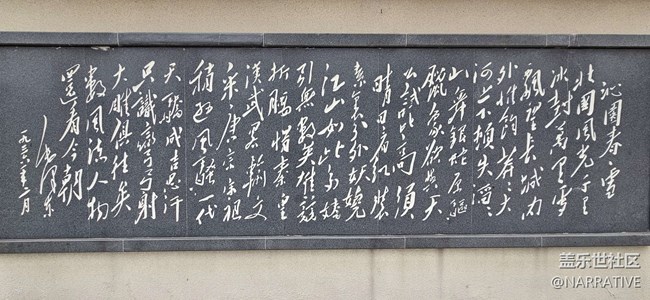 沁園春 雪
北国风光千里
冰封万里雪
飘望长城内
外惟馀莽莽大
河上下顿失滔滔
山舞银蛇原驱
腊象欲与天
公试比高须
晴日看红装
素裹分外妖娆
江山如此多娇
引无数英雄竞
折腰惜秦皇
汉武略输文
采唐宗宋祖
稍逊风骚一代
天骄成吉思汗
只识弯弓射
大雕俱往矣
数风流人物
還看今朝
毛泽东
盖乐世社区
@NARRATIVE